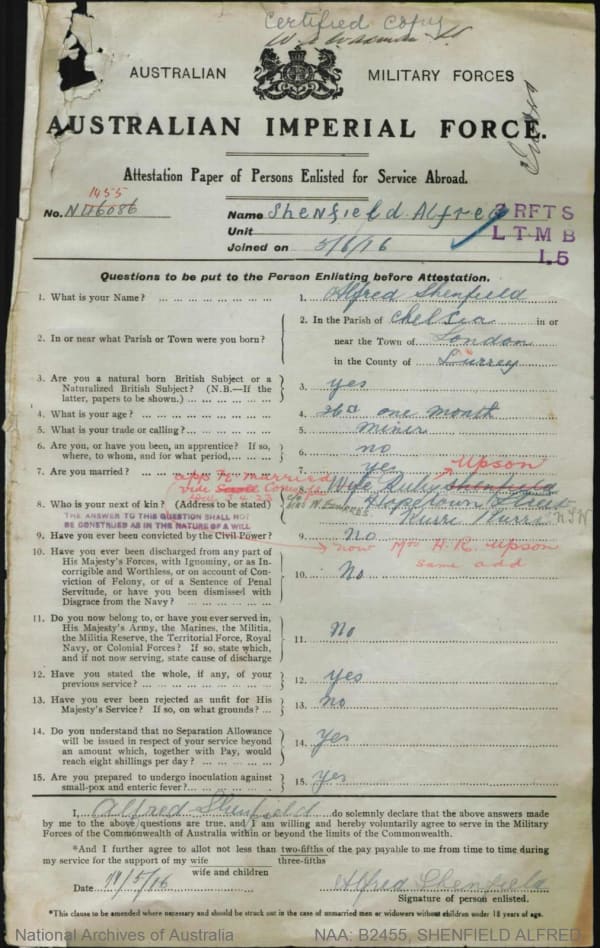 Certified Copy
AUSTRALIAN MILITARY FORCES
AUSTRALIAN IMPERIAL FORCE.
Attestation Paper of Persons Enlisted for Service Abroad.
1455
No. N46086
Name Shenfield Alfred
3 RFTS
Unit
L T M B
Joined on 5/6/16
1.5
Questions to be put to the Person Enlisting before Attestation.
1. What is your Name? ... 1. Alfred Shenfield
2. In or near what Parish or Town were you born? 2. In the Parish of Chelsia in or
near the Town of London
in the County of Surrey
3. Are you a natural born British Subject or a
Naturalized British Subject? (N.B.—If the
latter, papers to be shown.) ... 3. yes
4. What is your age? ... 4. one month
5. What is your trade or calling? ... 5. miner
6. Are you, or have you been, an apprentice? If so,
where, to whom, and for what period, ... 6. no
7. Are you married? ... 7. yes
Upson
married
vide
8. Who is your next of kin? (Address to be stated) Wife Ruby Shenfield
THE ANSWER TO THIS QUESTION SHALL NOT
BE CONSTRUED AS IN THE NATURE OF A WILL
Kurri Kurri N.S.W
9. Have you ever been convicted by the Civil Power? 9. No
now Mrs H. R. Upson
same add
10. Have you ever been discharged from any part of
His Majesty's Forces, with Ignominy, or as In-
corrigible and Worthless, or on account of Con-
viction of Felony, or of a Sentence of Penal
Servitude, or have you been dismissed with
Disgrace from the Navy? ... 10. No
11. Do you now belong to, or have you ever served in,
His Majesty's Army, the Marines, the Militia,
the Militia Reserve, the Territorial Force, Royal
Navy, or Colonial Forces? If so, state which,
and if not now serving, state cause of discharge 11. No
12. Have you stated the whole, if any, of your
previous service? ... 12. yes
13. Have you ever been rejected as unfit for His
Majesty's Service? If so, on what grounds? ... 13. no
14. Do you understand that no Separation Allowance
will be issued in respect of your service beyond
an amount which, together with Pay, would
reach eight shillings per day? ... 14. yes
15. Are you prepared to undergo inoculation against
small-pox and enteric fever? ... 15. yes
I, Alfred Shenfield do solemnly declare that the above answers made
by me to the above questions are true, and I am willing and hereby voluntarily agree to serve in the Military
Forces of the Commonwealth of Australia within or beyond the limits of the Commonwealth.
*And I further agree to allot not less than two-fifths of the pay payable to me from time to time during
my service for the support of my wife three-fifths
wife and children
Date /5/16 Alfred Shenfield
Signature of person enlisted.
*This clause to be amended where necessary and should be struck out in the case of unmarried men or widowers without children under 18 years of age.
National Archives of Australia NAA: B2455, SHENFIELD ALFRED